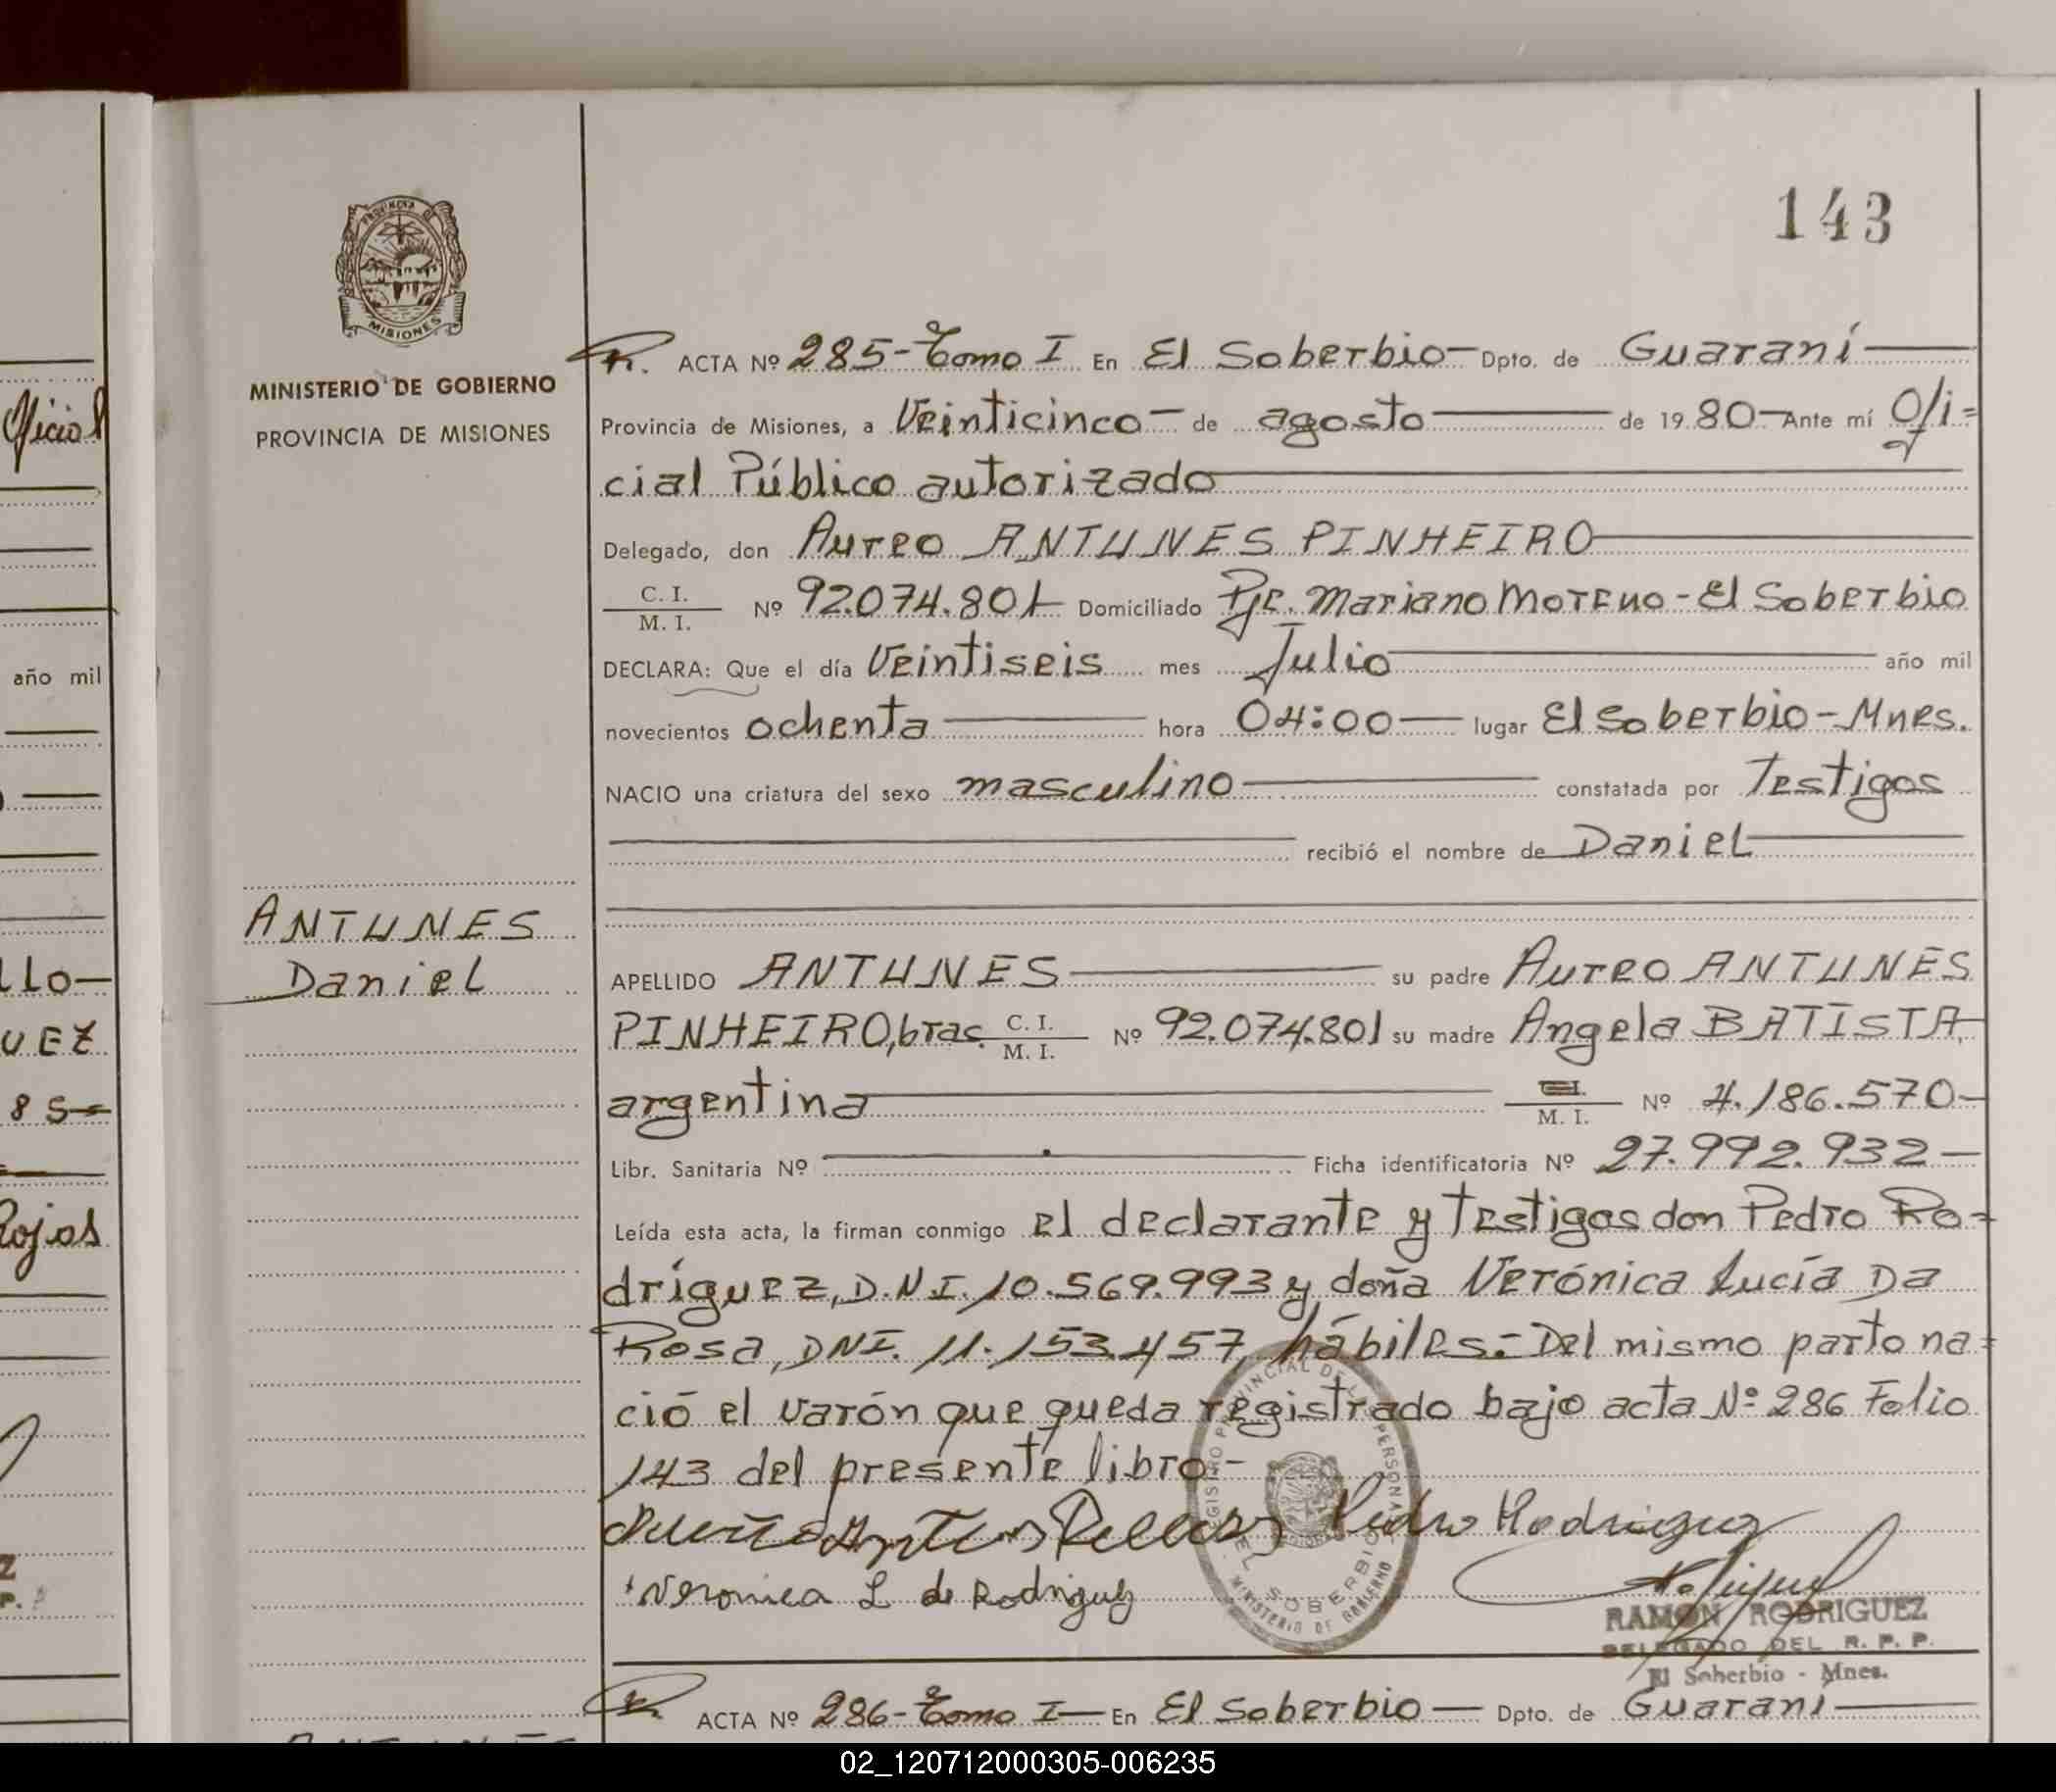 143
PROVINCIA DE
MISIONES
MINISTERIO DE GOBIERNO
PROVINCIA DE MISIONES
R. ACTA Nº 285-Tomo I En El Soberbio- Dpto. de Guaraní
Provincia de Misiones, a Veinticinco- de agosto de 1980- Ante mí Ofi=
cial Público autorizado
Delegado, don Aureo ANTUNES PINHEIRO
C. I.
M. I. Nº 92.074.801- Domiciliado Pje. Mariano Moreno - El Soberbio
DECLARA: Que el día Veintiseis mes Julio año mil
novecientos ochenta hora 04:00- lugar El Soberbio - Mnes.
NACIO una criatura del sexo masculino constatada por Testigos
recibió el nombre de Daniel
ANTUNES
Daniel
APELLIDO ANTUNES su padre Aureo ANTUNES
PINHEIRO, bras. C. I. M. I. Nº 92.074.801 su madre Angela BATISTA,
argentina M. I. Nº 4.186.570-
Libr. Sanitaria Nº Ficha identificatoria Nº 27.992.932-
Leída esta acta, la firman conmigo el declarante y Testigos don Pedro Ro=
dríguez, D.N.I. 10.569.993 y doña Verónica Lucía Da
Rosa, DNI. 11.153.457, hábiles.- Del mismo parto na=
ció el varón que queda registrado bajo acta Nº 286 Folio
143 del presente libro.-
Pedro Rodriguez
Veronica L de Rodriguez
REGISTRO PROVINCIAL DE LAS PERSONAS
EL SOBERBIO
MINISTERIO DE GOBIERNO
RAMON RODRIGUEZ
DELEGADO DEL R. P. P.
El Soberbio - Mnes.
R. ACTA Nº 286-Tomo I- En El Soberbio- Dpto. de Guaraní
ANTUNES
Oficial
año mil
LLo-
UEZ
85-
Rojos
02_120712000305-006235